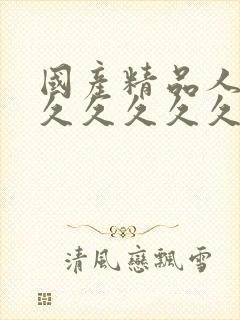 國產精品人
久久久久久
清風戀飄雪